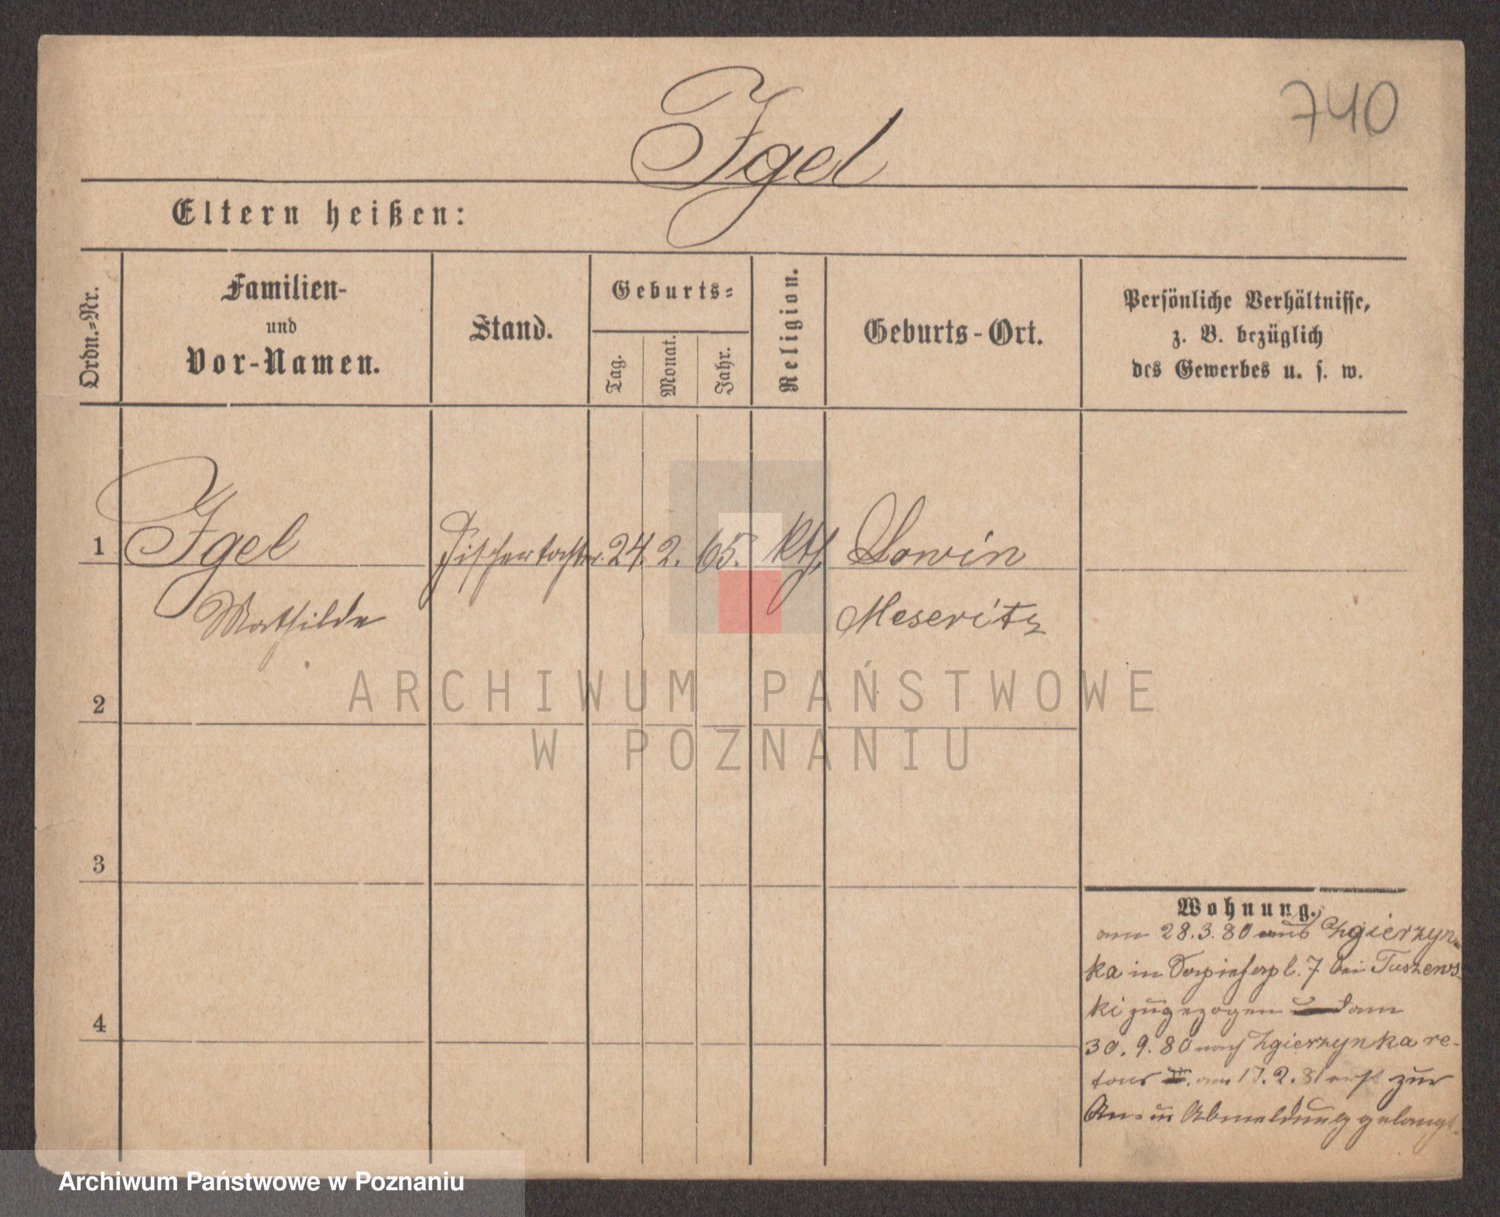 740
Igel
Eltern heißen:
Ordn.=Nr.
Familien-
und
Vor-Namen.
Stand.
Geburts=
Tag.
Monat.
Jahr.
Religion.
Geburts-Ort.
Persönliche Verhältnisse,
z. B. bezüglich
des Gewerbes u. s. w.
1 Igel Fischertochter 24. 2. 65. Kth. Lowin
Mathilde Meseritz
ARCHIWUM PAŃSTWOWE
W POZNANIU
2
3
4
Wohnung.
am 28.3.80 aus Zgierzyn-
ka in Sapiehapl. 7 bei Tuszews-
ki zugezogen u am
30.9.80 nach Zgierzynka re-
tour am 17.2.81 erst zur
An= u Abmeldung gelangt.
Archiwum Państwowe w Poznaniu